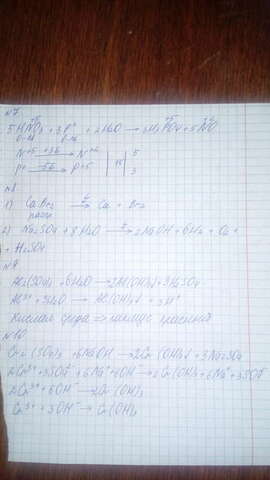 №7
5HNO₃ + 3P⁰ + 2H₂O → 3H₃PO₄ + 5NO
N⁺⁵ +3ē → N⁺² | 15 | 5
P⁰ -5ē → P⁺⁵ | 3
№8
1) CaBr₂ → Ca + Br₂
2) Na₂SO₄ + 8H₂O → 2NaOH + 6H₂ +
+ H₂SO₄
№9
Al₂(SO₄)₃ + 6H₂O → 2Al(OH)₃↓ + 3H₂SO₄
Al³⁺ + 3H₂O → Al(OH)₃↓ + 3H⁺
Кислая среда => лакмус красный
№10
Cr₂(SO₄)₃ + 6NaOH → 2Cr(OH)₃↓ + 3Na₂SO₄
2Cr³⁺ + 3SO₄²⁻ + 6Na⁺ + 6OH⁻ → 2Cr(OH)₃ + 6Na⁺ + 3SO₄²⁻
2Cr³⁺ + 6OH⁻ → 2Cr(OH)₃
Cr³⁺ + 3OH⁻ → Cr(OH)₃